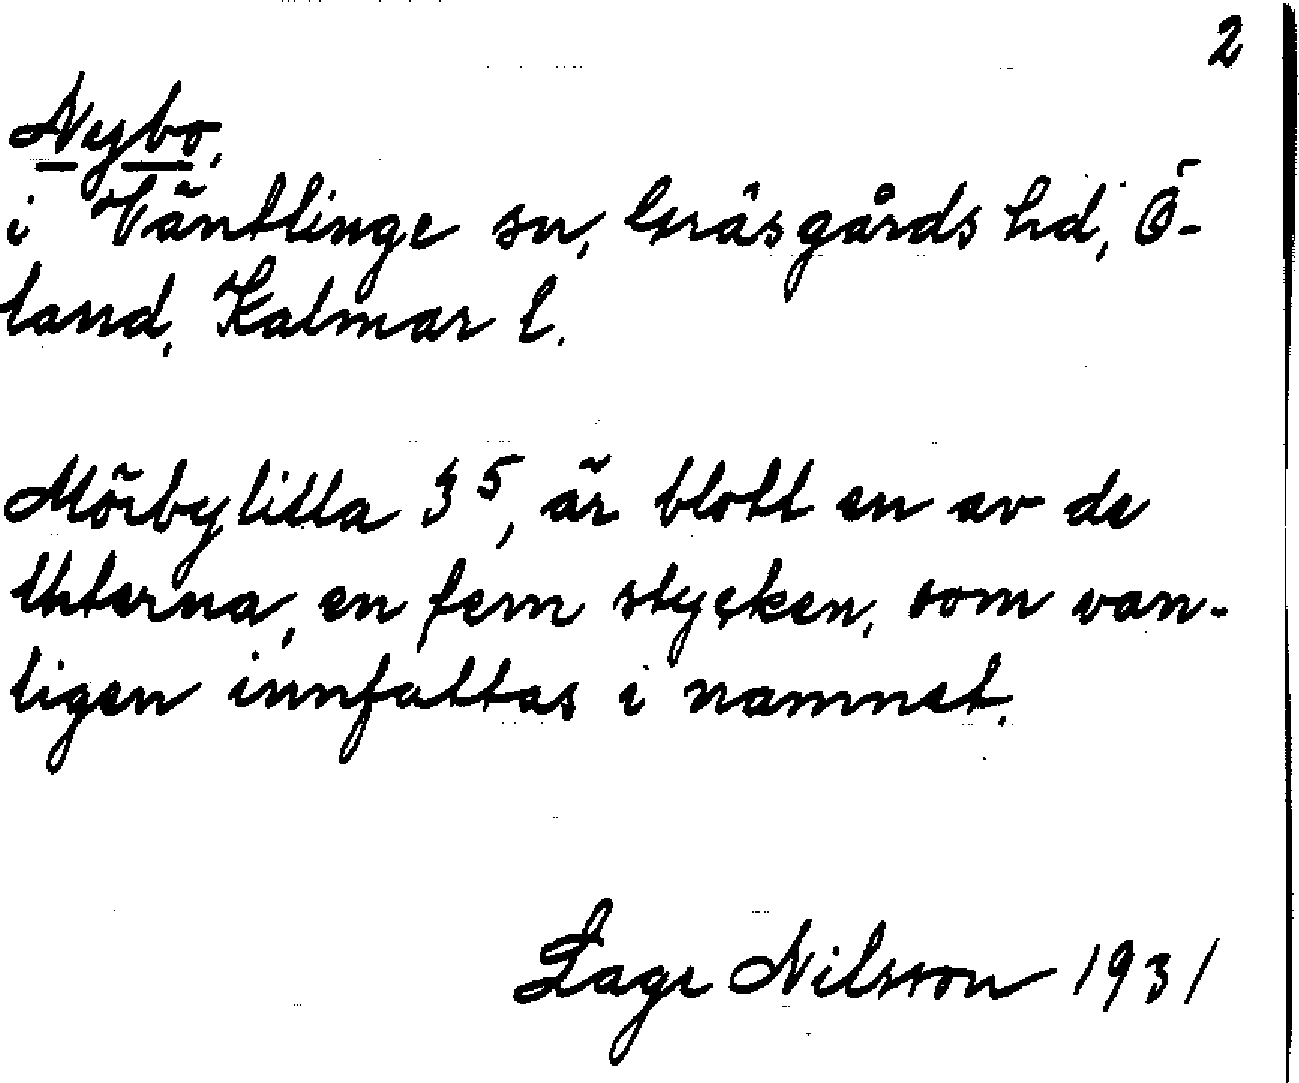 2
Nybo,
i Väntlinge sn, Gräsgårds hd, Ö-
land, Kalmar l.
Mörbylilla 3⁵, är blott en av de
tterna, en fem stycken, som van-
ligen innfattas i namnet.
Lage Nilsson 1931